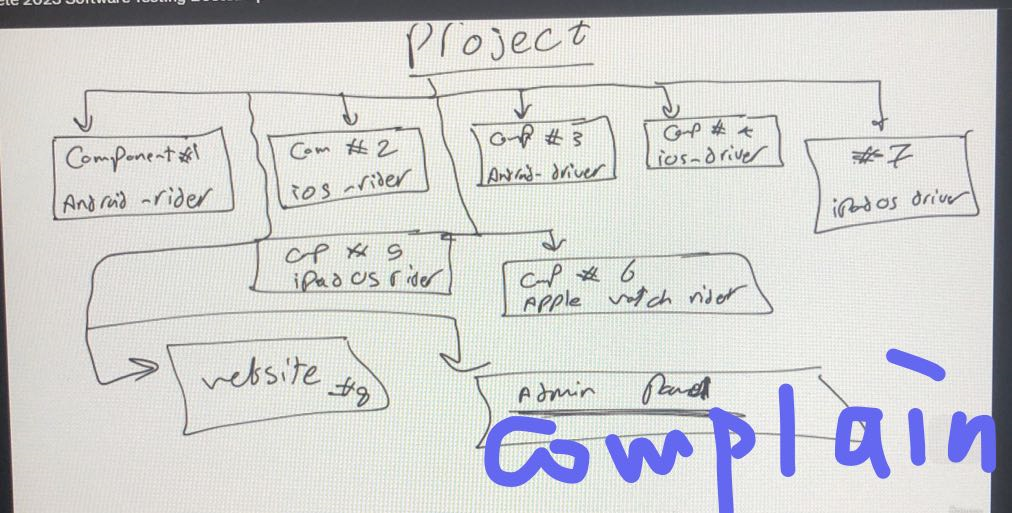 Project
Component #1
Android - rider
Com # 2
ios - rider
Comp # 3
Android - driver
Comp #
ios - driver
# 7
iPad OS driver
# 5
iPad OS rider
# 6
Apple watch rider
website #8
Admin Panel
Complain